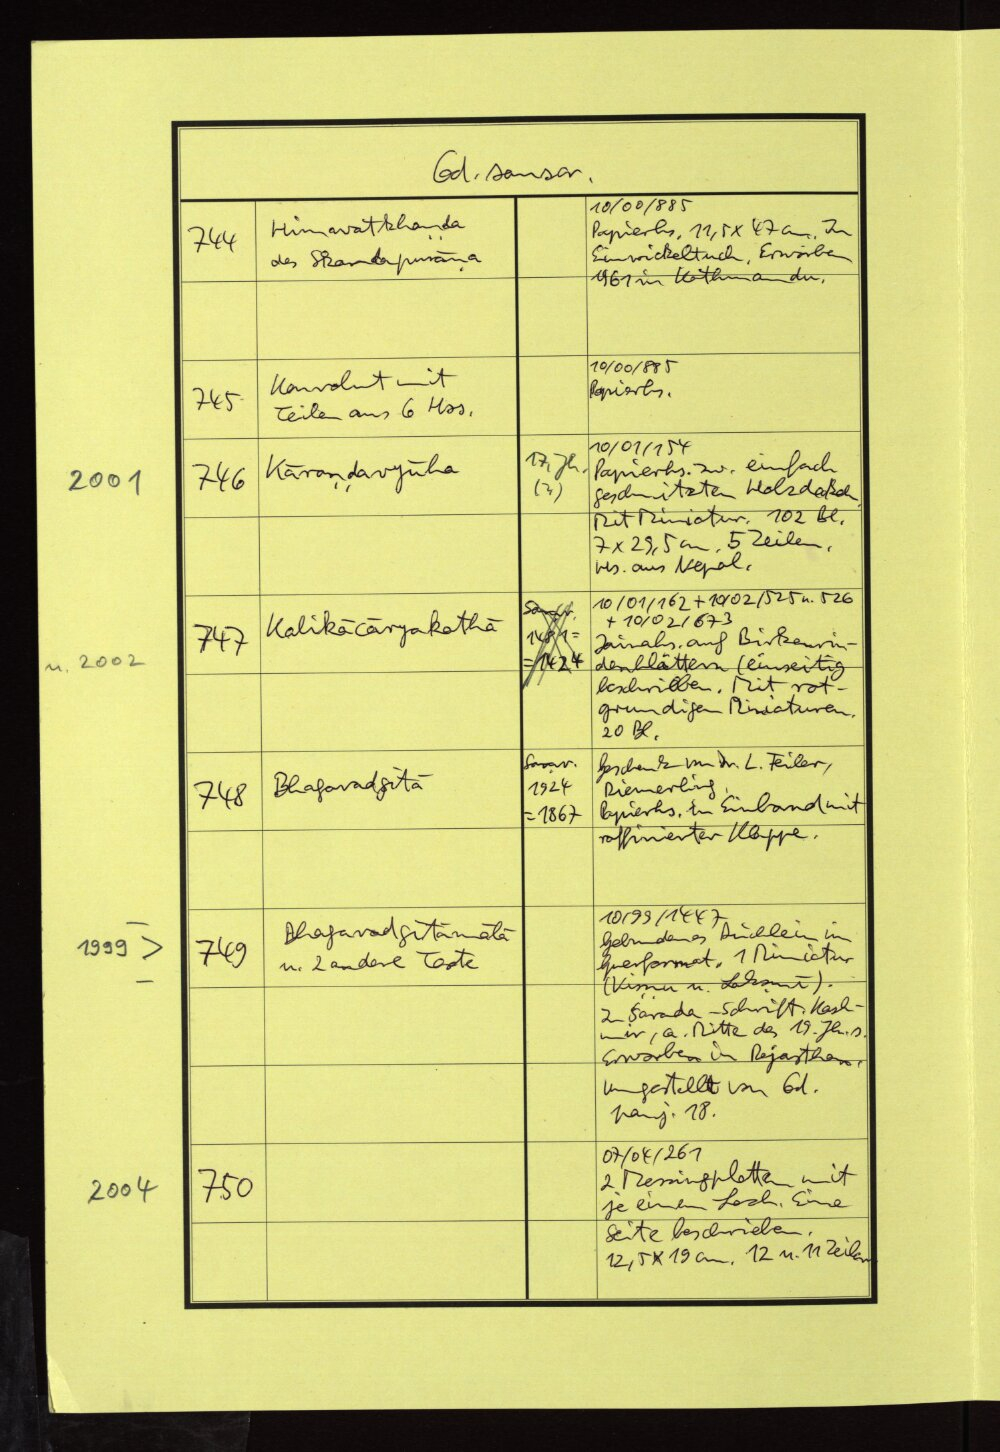 Cod. sanscr.
744
Himavatkhaṇḍa
des Skandapurāṇa
10/00/885
Papierhs. 11,5 x 47 cm. In
Einwickeltuch. Erworben
1961 in Kathmandu.
745
Konvolut mit
Teilen aus 6 Hss.
10/00/885
Papierhs.
2001
746
Kāraṇḍavyūha
17. Jh.
(?)
10/01/154
Papierhs. zw. einfach
geschnitzten Holzdeckeln
Mit Miniatur. 102 Bl.
7 x 29,5 cm. 5 Zeilen.
aus Nepal.
u. 2002
747
Kalikācāryakathā
Saṃv.
1481 =
= 1424
10/01/162 + 10/02/525 u. 526
+ 10/02/673
Jainahs. auf Birkenrin-
denblättern (einseitig
beschrieben. Mit rot-
grundigen Miniaturen.
20 Bl.
748
Bhagavadgītā
Saṃv.
1924
= 1867
Geschenk von Dr. L. Feiler,
Riemerling.
Papierhs. in Einband mit
raffinierter Klappe.
1999 >
749
Bhagavadgītāmālā
u. 2 andere Texte
10/99/1447
Gebundenes Büchlein im
Querformat. 1 Miniatur
(Viṣṇu u. Lakṣmī).
In Śāradā-Schrift. Kash-
mir, a. Mitte des 19. Jh.s.
Erworben in Rajasthan.
umgestellt von Cod.
panj. 18.
2004
750
07/04/261
2 Messingplatten mit
je einem Loch. Eine
Seite beschrieben.
12,5 x 19 cm. 12 u. 11 Zeilen